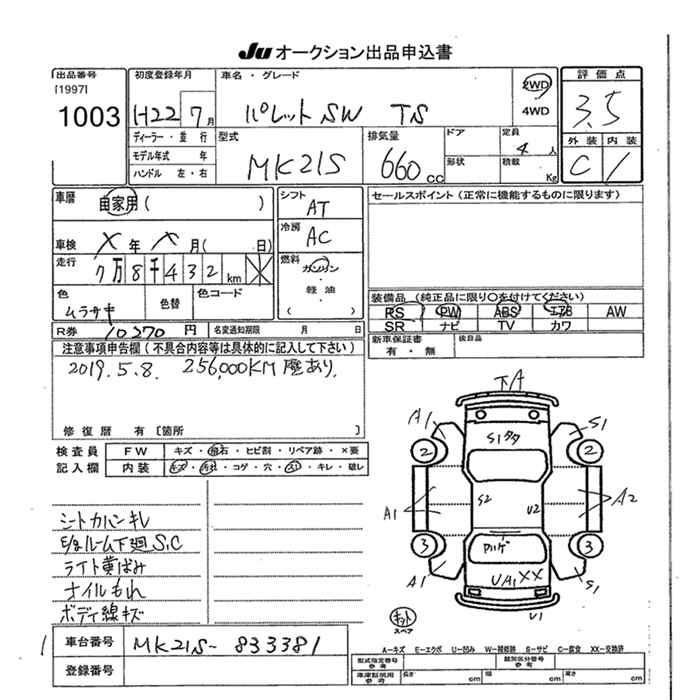 Ju オークション出品申込書
出品番号 初度登録年月 車名・グレード 2WD 評価点
[1997]
1003 H22 7月 パレットSW TS 4WD 3.5
ディーラー・並行 型式 排気量 ドア 定員 外装 内装
モデル年式 年 MK21S 660cc 形状 4人 C 1
ハンドル 左・右 積載 Kg
車歴 自家用( ) シフト AT セールスポイント(正常に機能するものに限ります)
冷房 AC
車検 X年X月( 日)
走行 7万8千432km 燃料 ガソリン
軽油
( )
色 ムラサキ 色替 色コード 装備品(純正品に限り○を付けてください)
RS PW ABS エアB AW
SR ナビ TV カワ
R券 10270円 名変通知期限 月 日 新車保証書 後日品
有・無
注意事項申告欄(不具合内容等は具体的に記入して下さい)
2019.5.8. 256,000KM歴あり.
修復歴 有〔箇所 〕
検査員 FW キズ・飛石・ヒビ割・リペア跡・×要
記入欄 内装 キズ・汚れ・コゲ・穴・スレ・キレ・破レ
下A
A1 S1
2 S1タタ 2
A1 S2 U2 A2
3 3
A1 UA1 XX S1
U1
シートカバーキレ
下廻S.C
ライト黄ばみ
オイルもれ
ボディ線キズ
キット
スペア
A-キズ E-エクボ U-凹み W-補修跡 S-サビ C-腐食 XX-交換済
車台番号 MK21S-833381
登録番号
型式指定番号 参考 類別区分番号 参考
車庫証明用 参考 長さ cm 幅 cm 高さ cm